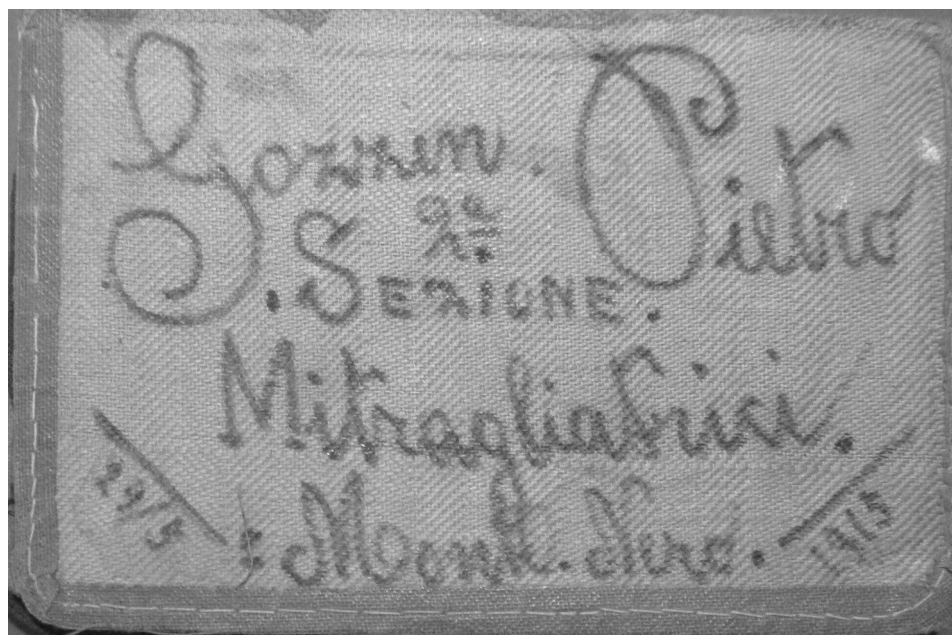 Pietro
2ª
. SEZIONE .
Mitragliatrici .
24/5
: Monte . Nero .
1915